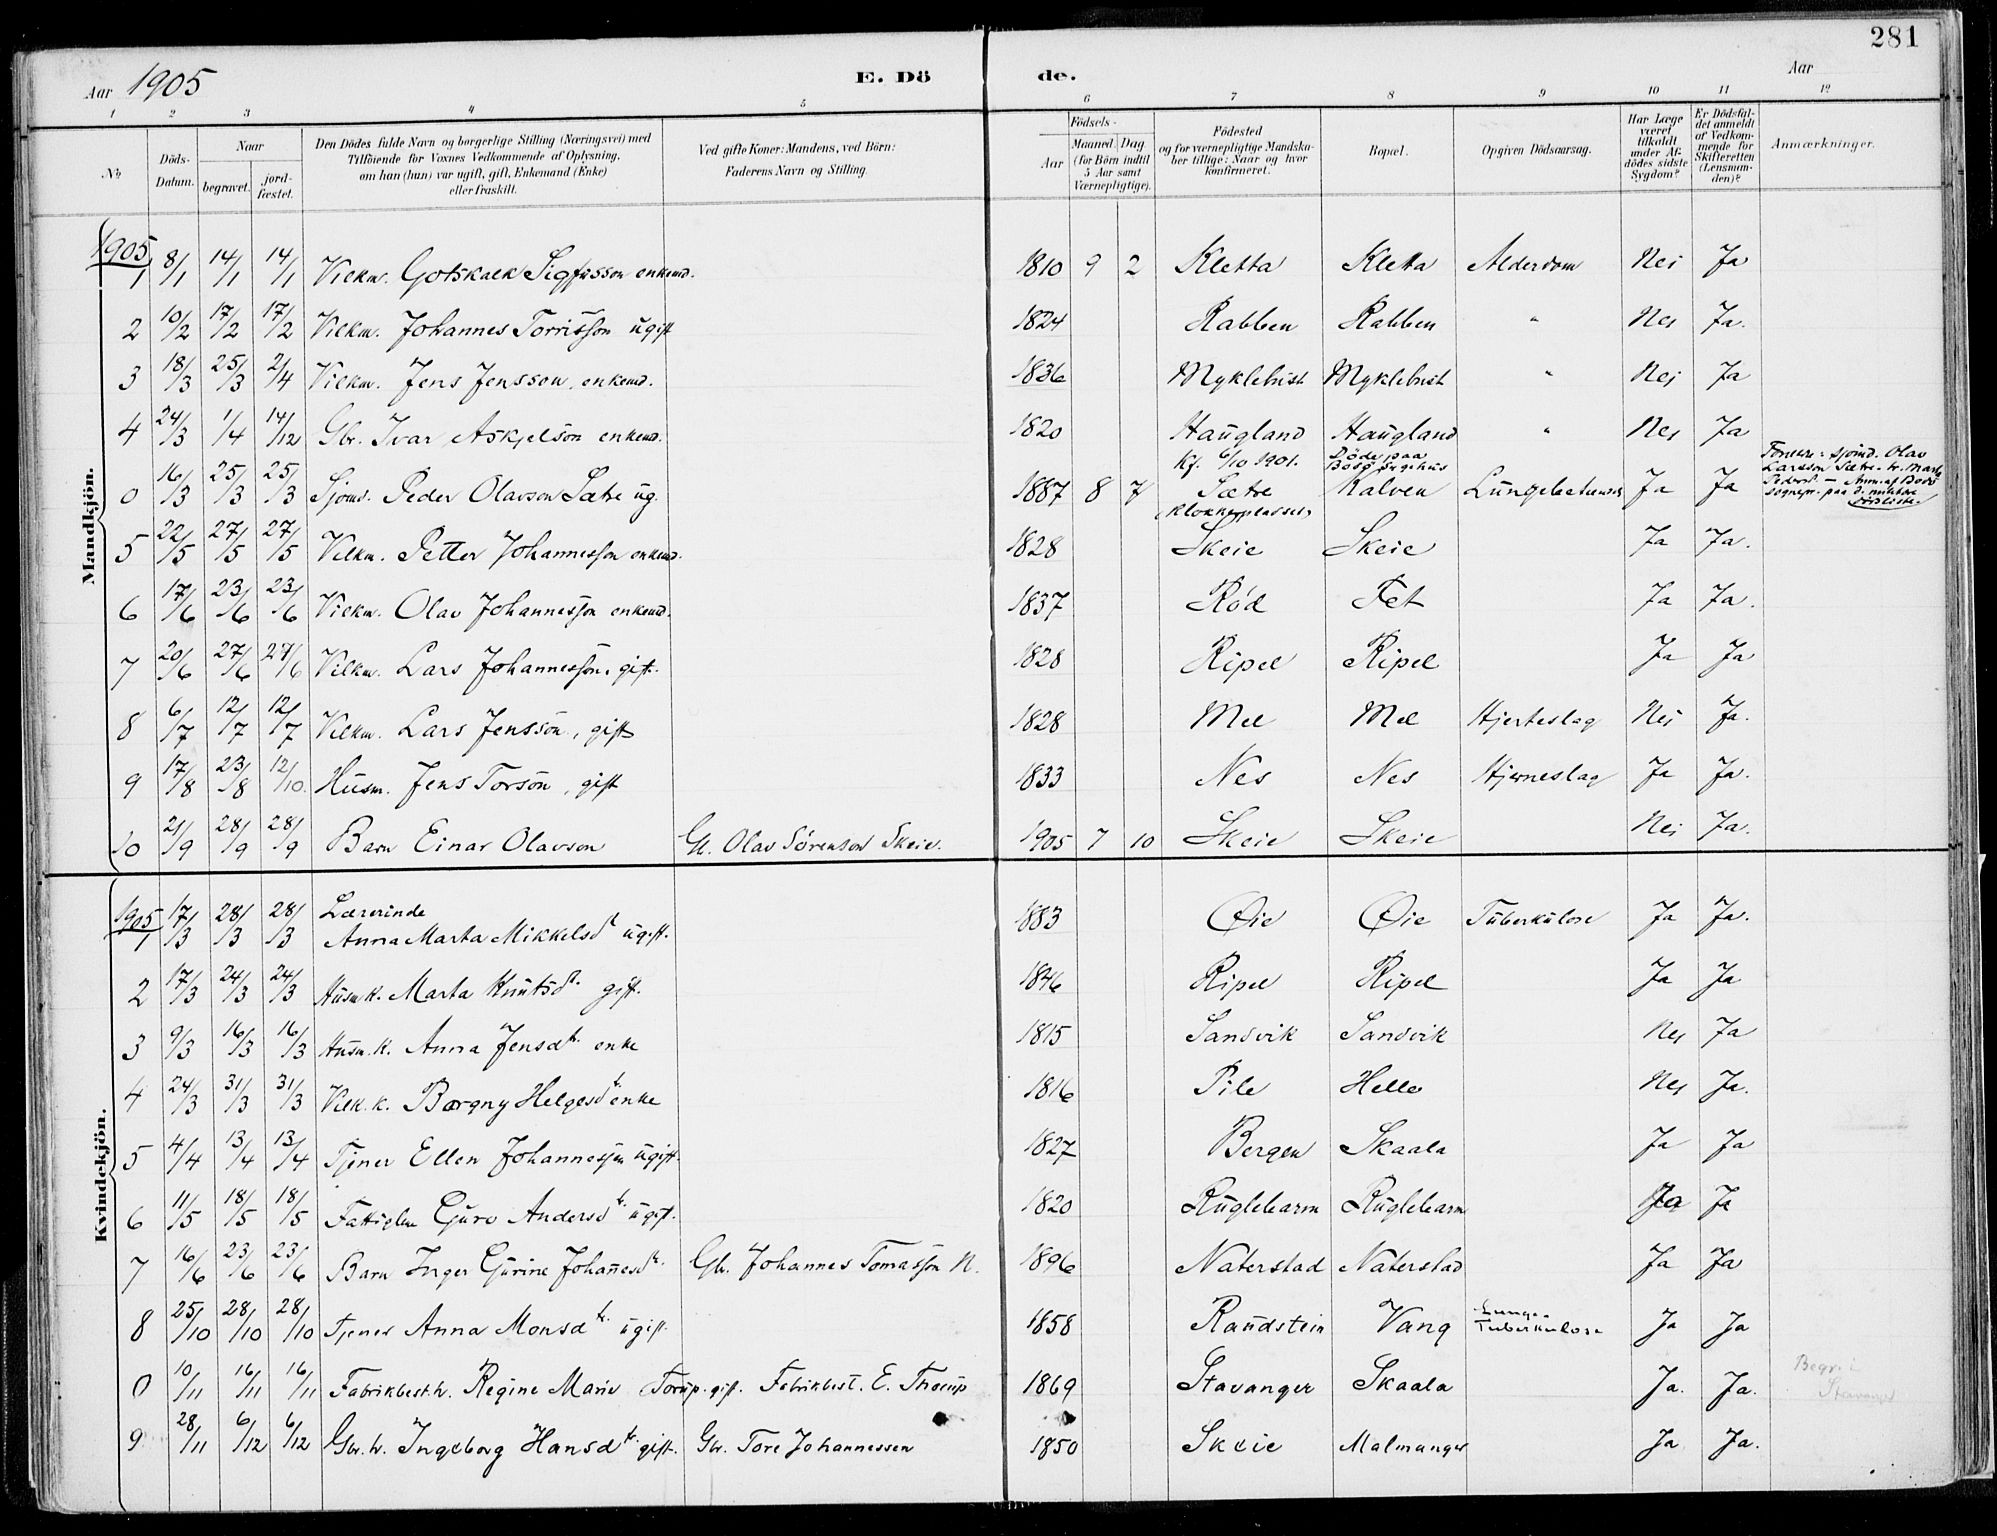 281
Aar 1905 E. Dö de. Aar
1 2 3 4 5 6 7 8 9 10 11 12
No Döds-Datum. Naar begravet. jordfæstet. Den Dödes fulde Navn og borgerlige Stilling (Næringsvei) med Tilföiende for Voxnes Vedkommende af Oplysning, om han (hun) var ugift, gift, Enkemand (Enke) eller fraskilt. Ved gifte Koner: Mandens, ved Börn: Faderens Navn og Stilling. Födsels- Aar Maaned Dag (for Börn indtil 5 Aar samt Værnepligtige). Födested og for værnepligtige Mandskaber tillige: Naar og hvor konfirmeret. Bopæl. Opgiven Dödsaarsag. Har Læge været tilkaldt under Afdödes sidste Sygdom? Er Dödsfaldet anmeldt af Vedkommende for Skifteretten (Lensmanden)? Anmærkninger.
Mandkjön.
1905
1 8/1 14/1 14/1 Vilkm. Gotskalk Sigfusson enkemd. 1810 9 2 Kletta Kletta Alderdom Nei Ja
2 10/2 17/2 17/2 Vilkm. Johannes Torrisson ugift 1824 Rabben Rabben " Nei Ja.
3 18/3 25/3 2/4 Vilkm. Jens Jensson, enkemd. 1836 Myklebust Myklebust " Nei Ja
4 24/3 1/4 14/12 Gbr. Ivar Askjelson enkemd. 1820 Haugland Haugland " Nei Ja
0 16/3 25/3 25/3 Sjömd. Peder Olavson Sætre ug. 1887 8 7 Kf. 6/10 1901. Sætre Klokkerplassen Döde paa Bodö sygehus Kalven Ja Ja sjömd. Olav Larsson Sætre
5 22/5 27/5 27/5 Vilkm. Petter Johannesson enkemd. 1828 Skeie Skeie Ja Ja.
6 17/6 23/6 23/6 Vilkm. Olav Johannesson enkemd. 1837 Röd Fet Ja Ja.
7 20/6 27/6 27/6 Vilkm. Lars Johannesson, gift. 1828 Ripel Ripel Ja Ja
8 6/7 12/7 12/7 Vilkm. Lars Jensson, gift 1828 Mel Mel Hjerteslag Nei Ja.
9 17/8 23/8 12/10. Husm. Jens Torson, gift 1833 Nes Nes Hjerneslag Ja Ja.
10 21/9 28/9 28/9 Barn Einar Olavson G. Olav Sörenson Skeie. 1905 7 10 Skeie Skeie Nei Ja.
Kvindekjön.
1905
1 17/3 28/3 28/3 Lærerinde Anna Marta Mikkelsdt ugift. 1883 Øie Øie Tuberkulose Ja Ja.
2 17/3 24/3 24/3 Husm.k. Marta Knutsdt. gift. 1846 Ripel Ripel Ja Ja
3 9/3 16/3 16/3 Husm.k. Anna Jensdt. enke 1815 Sandvik Sandvik Nei Ja
4 24/3 31/3 31/3 Vilk.k. Borgny Helgesdt. enke 1816 Pile Helle Nei Ja.
5 4/4 13/4 13/4 Tjener Ellen Johannessen ugift. 1827 Bergen Skaala Ja Ja
6 11/5 18/5 18/5 Guro Andersdt. ugift. 1820 Kuglebarm Kuglebarm Ja Ja
7 16/6 23/6 23/6 Barn Inger Gurine Johanesdt. Gbr. Johannes Tomasson N. 1896 Naterstad Naterstad Ja Ja
8 25/10 28/10 28/10 Tjener Anna Monsdt. ugift. 1858 Raudstein Vang Lunge-Tuberkulose Ja Ja
0 10/11 16/11 16/11 Fabrikbest.h. Regine Marie Torup. gift. Fabrikbest. E. Thorup 1869 Stavanger Skaala Ja. Ja. Begr. i Stavanger
9 28/11 6/12 6/12 Gbr.h. Ingeborg Hansdt. gift. Gbr. Tore Johannessen 1850 Skeie Malmanger Ja Ja.